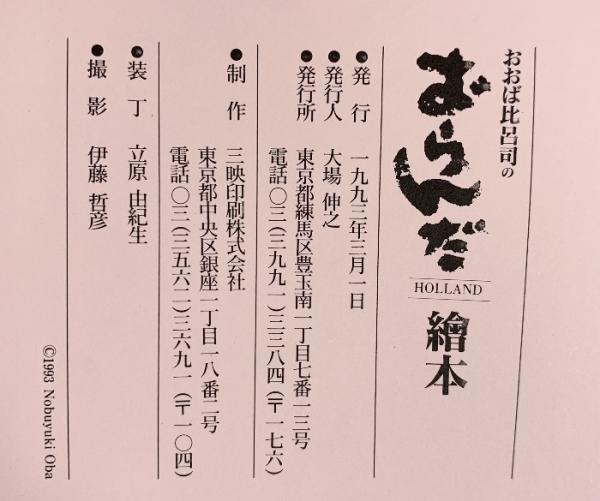 おおば比呂司の
おらんだ
HOLLAND
繪本
●発行 一九九三年三月一日
●発行人 大場 伸之
●発行所 東京都練馬区豊玉南一丁目七番一三号
電話〇三(三九九一)三三八四(〒一七六)
●制作 三映印刷株式会社
東京都中央区銀座一丁目一八番二号
電話〇三(三五六二)三六九一(〒一〇四)
●装丁 立原 由紀生
●撮影 伊藤 哲彦
©1993 Nobuyuki Oba